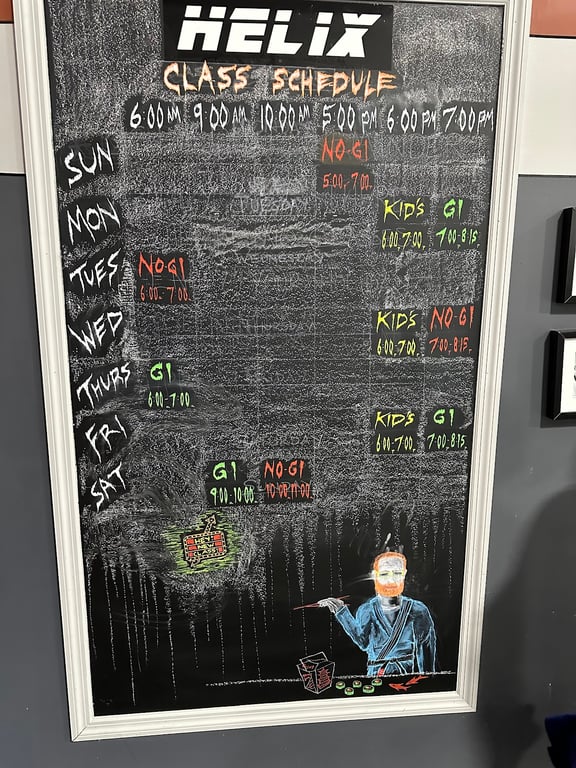 HELIX
CLASS SCHEDULE
6:00 AM 9:00 AM 10:00 AM 5:00 PM 6:00 PM 7:00 PM
SUN NO-GI
5:00-7:00
TUESDAY
MON KID'S GI
6:00-7:00 7:00-8:15
WEDNESDAY
TUES NO-GI
6:00-7:00
WED KID'S NO-GI
6:00-7:00 7:00-8:15
THURS GI
6:00-7:00
FRI KID'S GI
6:00-7:00 7:00-8:15
SAT GI NO-GI
9:00-10:00 10:00-11:00